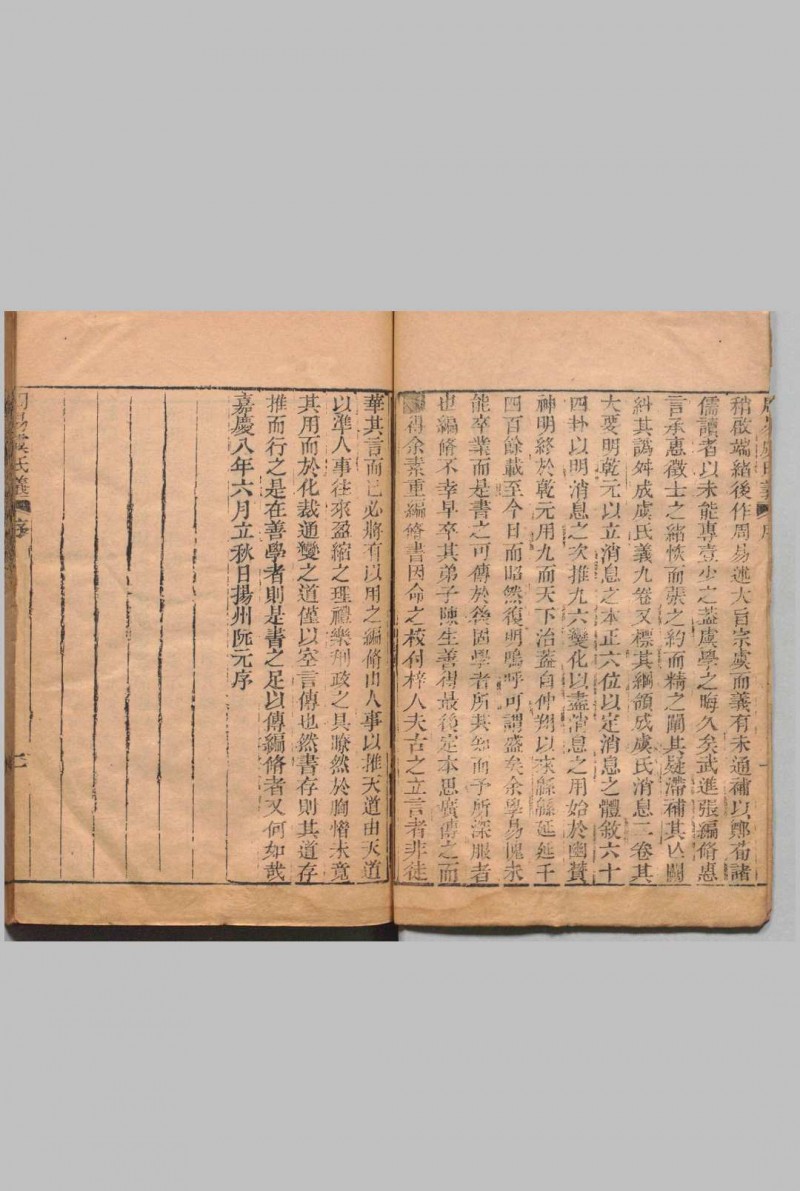 稍啟端緒後作周易述大旨宗虞而義有未通補以鄭荀諸
儒讀者以未能專壹少之蓋虞學之晦久矣武進張編脩惠
言承惠徵士之緒恢而張之約而精之闡其疑滯補其亾闕
糾其譌舛成虞氏義九卷又標其綱領成虞氏消息二卷其
大要明乾元以立消息之本正六位以定消息之體敘六十
四卦以明消息之次推九六變化以盡消息之用始於幽贊
神明終於乾元用九而天下治蓋自仲翔以來緜緜延延千
四百餘載至今日而昭然復明嗚呼可謂盛矣余學易愧未
能卒業而是書之可傳於後固學者所共知而予所深服者
也編脩不幸早卒其弟子陳生善得最後定本思廣傳之而
得余素重編脩書因命之校付梓人夫古之立言者非徒
華其言而已必將有以用之編脩由人事以推天道由天道
以準人事往來盈縮之理禮樂刑政之具暸然於胸愭未竟
其用而於化裁通變之道僅以空言傳也然書存則其道存
推而行之是在善學者則是書之足以傳編脩者又何如哉
嘉慶八年六月立秋日揚州阮元序
周易虞氏義 序 二